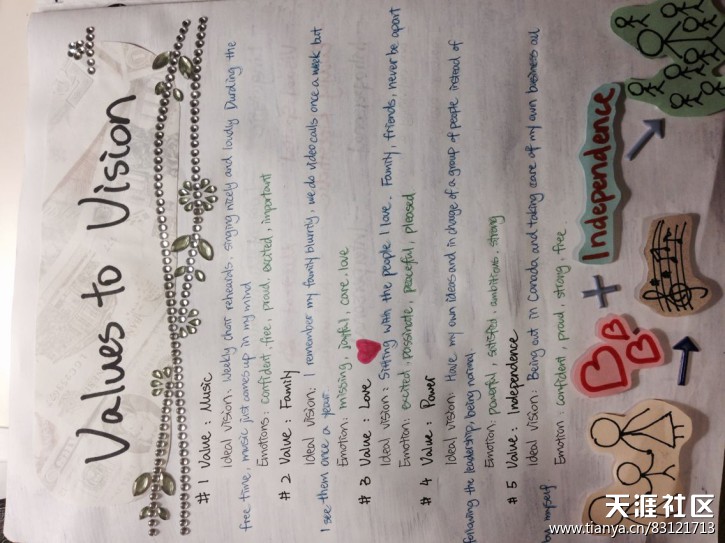 Values to Vision
#1 Value: Music
Ideal vision: Weekly choir rehearsls, singing nicely and loudly Durding the
free time, music just comes up in my mind
Emotions: confident, free, proud, excited, important
#2 Value: Family
Ideal vision: I remember my family blurrly, we do video calls once a week but
I see them once a year.
Emotion: missing, joyful, care, love
#3 Value: Love
Ideal vision: Sitting with the people I love. Family, friends, never be apart
Emotion: excited, passinate, peaceful, pleased
#4 Value: Power
Ideal vision: Have my own ideas and in charge of a group of people instead of
following the leadership, being normal
Emotion: powerful, satisfied, ambitious, strong
#5 Value: Independence
Ideal vision: Being out in Canada and taking care of my own business all
by myself
Emotion: confident, proud, strong, free
+ Independence
天涯社区
www.tianya.cn/83121713